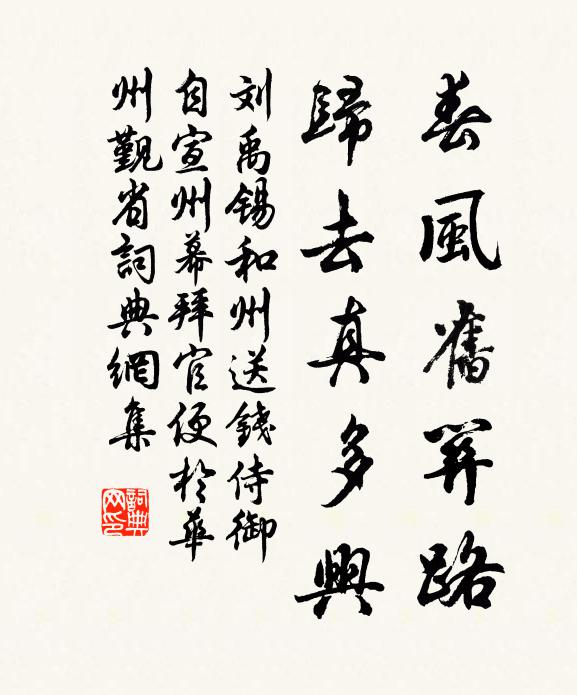 春風舊關路
歸去真多興
刘禹锡和州送錢侍御
自宣州幕拜官便於華
州觐省詞典網集
詞典网印